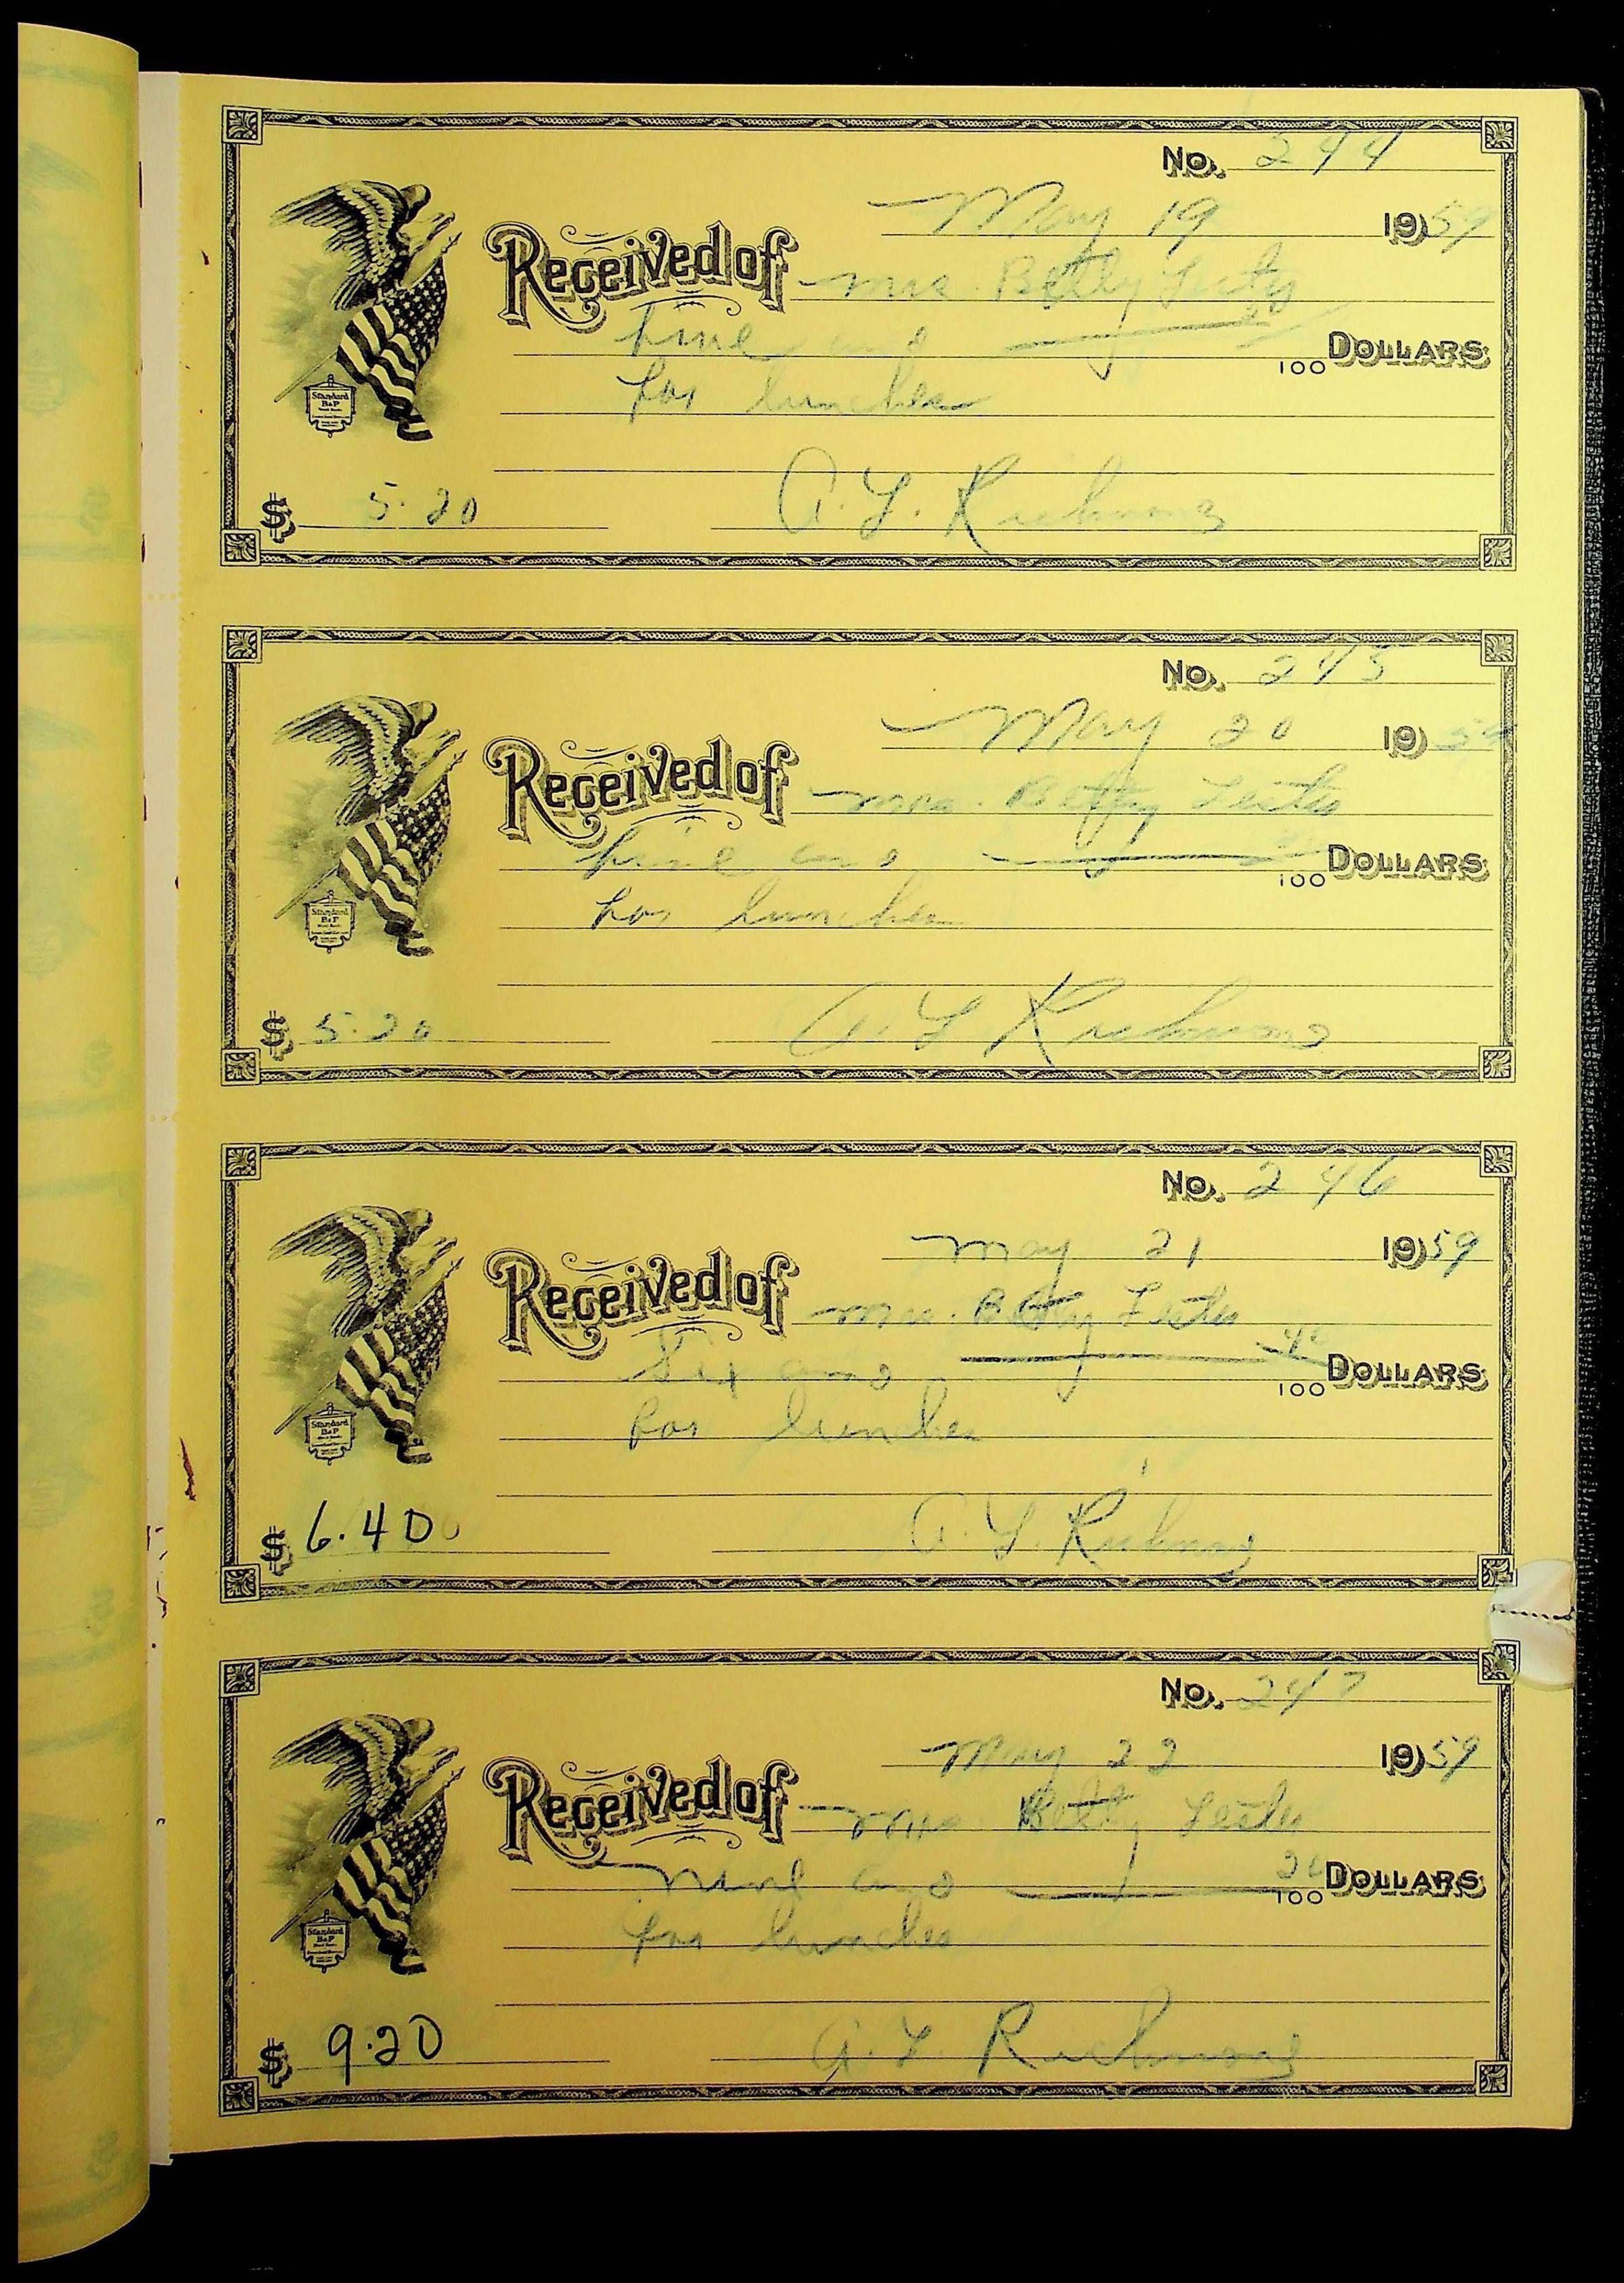 No. 244
May 19 1959
Received of Mrs. Betty Lester
Five and 20/100 Dollars
for lunches
Standard
B&P
$ 5.20 A. L. Richmond
No. 245
May 20 1959
Received of Mrs. Betty Lester
Five and 20/100 Dollars
for lunches
Standard
B&P
$ 5.20 A. L. Richmond
No. 246
May 21 1959
Received of Mrs. Betty Lester
Six and 40/100 Dollars
for lunches
Standard
B&P
$ 6.40 A. L. Richmond
No. 247
May 22 1959
Received of Mrs Betty Lester
Nine and 20/100 Dollars
for lunches
Standard
B&P
$ 9.20 A. L. Richmond